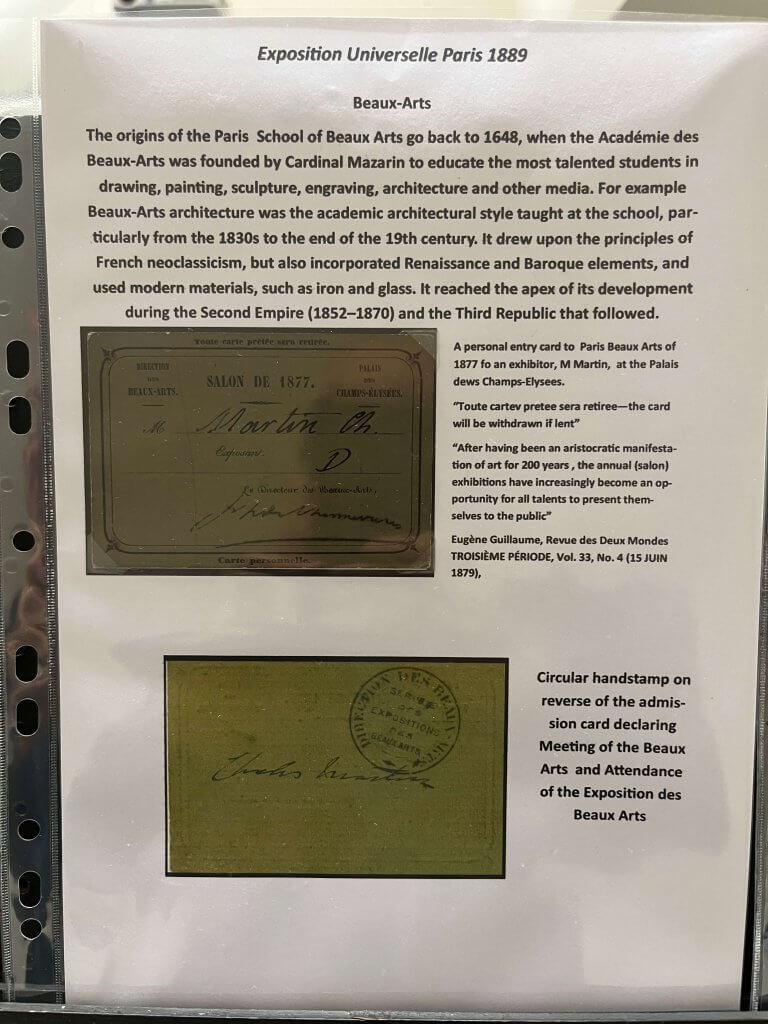 Exposition Universelle Paris 1889
Beaux-Arts
The origins of the Paris School of Beaux Arts go back to 1648, when the Académie des
Beaux-Arts was founded by Cardinal Mazarin to educate the most talented students in
drawing, painting, sculpture, engraving, architecture and other media. For example
Beaux-Arts architecture was the academic architectural style taught at the school, par-
ticularly from the 1830s to the end of the 19th century. It drew upon the principles of
French neoclassicism, but also incorporated Renaissance and Baroque elements, and
used modern materials, such as iron and glass. It reached the apex of its development
during the Second Empire (1852–1870) and the Third Republic that followed.
Toute carte prêtée sera retirée.
DIRECTION
DES
BEAUX-ARTS.
SALON DE 1877.
PALAIS
DES
CHAMPS-ÉLYSÉES.
M Martin Ch.
Exposant. D
Le Directeur des Beaux-Arts,
Carte personnelle.
A personal entry card to Paris Beaux Arts of
1877 fo an exhibitor, M Martin, at the Palais
dews Champs-Elysees.
“Toute cartev pretee sera retiree—the card
will be withdrawn if lent”
“After having been an aristocratic manifesta-
tion of art for 200 years , the annual (salon)
exhibitions have increasingly become an op-
portunity for all talents to present them-
selves to the public”
Eugène Guillaume, Revue des Deux Mondes
TROISIÈME PÉRIODE, Vol. 33, No. 4 (15 JUIN
1879),
DIRECTION DES BEAUX-ARTS
SERVICE
DES
EXPOSITIONS
DES
BEAUX ARTS
Charles Martin
Circular handstamp on
reverse of the admis-
sion card declaring
Meeting of the Beaux
Arts and Attendance
of the Exposition des
Beaux Arts